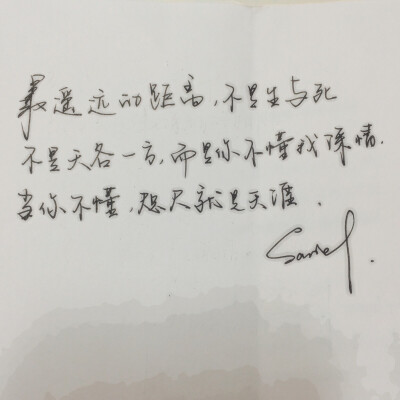 最遥远的距离,不是生与死
不是天各一方,而是你不懂我深情.
当你不懂,咫尺就是天涯.